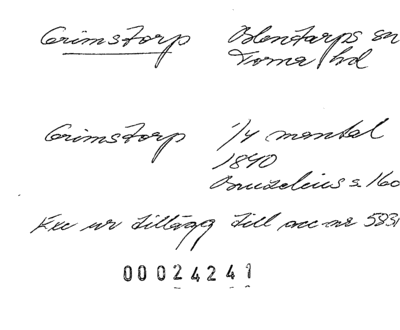 Grimstorp Blentarps sn
Torna hd
Grimstorp 1/4 mantal
1840
Bruzelius s 160
Exc ur tillägg till acc-nr 5831
00024241